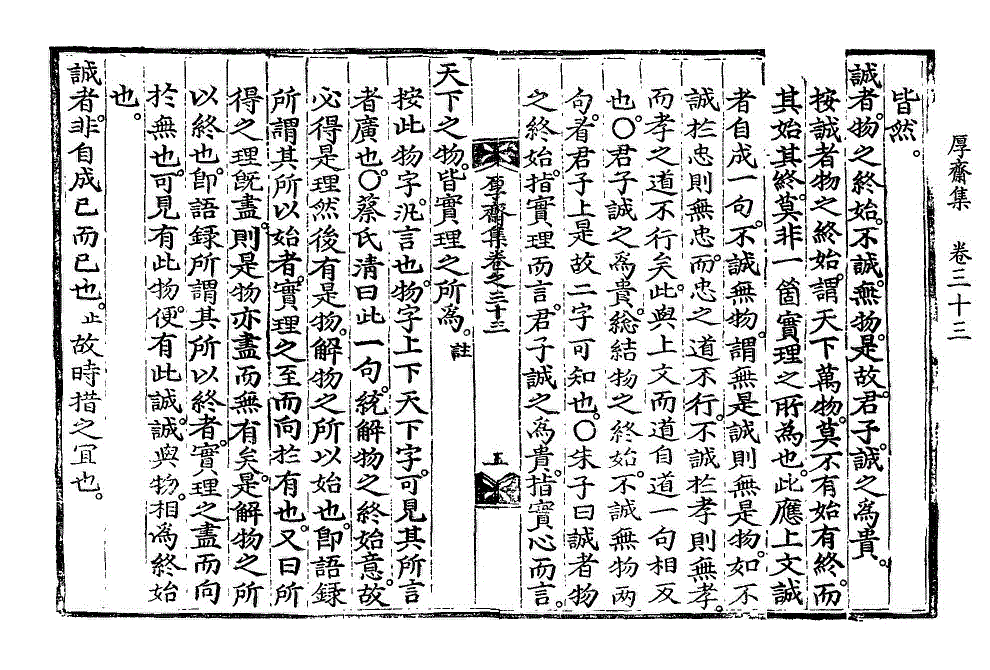 厚齋集 卷三十三
皆然。
誠者。物之終始。不誠。無物。是故。君子。誠之爲貴。
按誠者物之終始。謂天下萬物。莫不有始有終。而
其始其終。莫非一箇實理之所爲也。此應上文誠
者自成一句。不誠無物。謂無是誠則無是物。如不
誠於忠則無忠。而忠之道不行。不誠於孝則無孝。
而孝之道不行矣。此與上文而道自道一句相反
也。○君子誠之爲貴。緫結物之終始。不誠無物兩
句。看君子上是故二字可知也。○朱子曰誠者物
之終始。指實理而言。君子誠之爲貴。指實心而言。
厚齋集卷之三十三 五
天下之物。皆實理之所爲。註
按此物字。汎言也。物字上下天下字。可見其所言
者廣也。○蔡氏淸曰此一句。統解物之終始意。故
必得是理然後有是物。解物之所以始也。卽語録
所謂其所以始者。實理之至而向於有也。又曰所
得之理旣盡。則是物亦盡而無有矣。是解物之所
以終也。卽語録所謂其所以終者。實理之盡而向
於無也。可見有此物。便有此誠。誠與物。相爲終始
也。
誠者。非自成己而已也。止故時措之宜也。